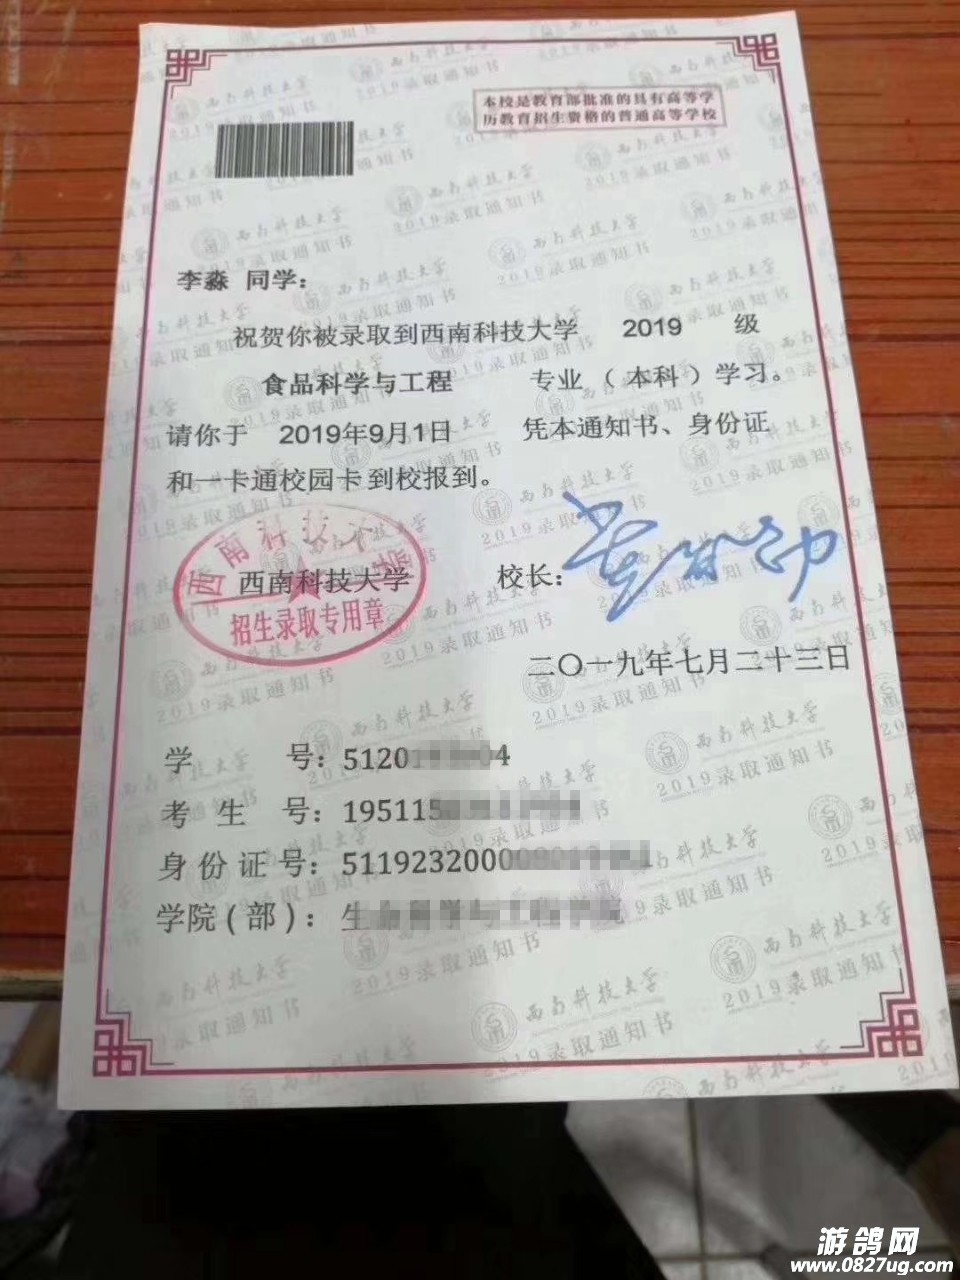 本校是教育部批准的具有高等学
历教育招生资格的普通高等学校
李淼 同学：
祝贺你被录取到西南科技大学 2019 级
食品科学与工程 专业（本科）学习。
请你于 2019年9月1日 凭本通知书、身份证
和一卡通校园卡到校报到。
西南科技大学
西南科技大学 校长：
招生录取专用章
二〇一九年七月二十三日
学 号：5120 4
考 生 号：195115
身份证号：51192320000
学院（部）：
西南科技大学
2019录取通知书
游鸽网
www.0827ug.com